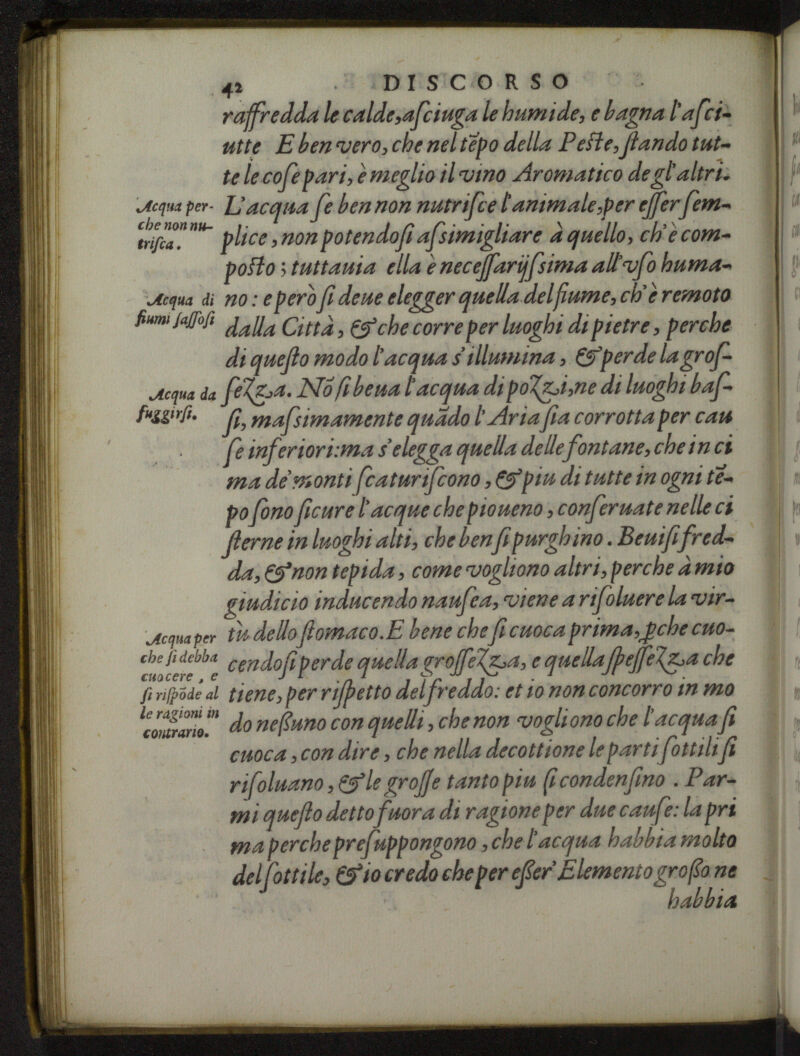 42 DISCORSO
raffredda le calde, asciuga le humide, e bagna l'asci-
utte E ben vero, che nel tẽpo della Peste, stando tut-
te le cose pari, è meglio il vino Aromatico de gl'altri.
Acqua per-
che non nu-
trisca.
L'acqua se ben non nutrisce l'animale, per esser sem-
plice, non potendosi assimigliare à quello, ch'è com-
posto; tuttauia ella è necessarijssima all'vso huma-
Acqua di
fiumi sassosi
no: e però si deue elegger quella del fiume, ch'è remoto
dalla Città, & che corre per luoghi di pietre, perche
di questo modo l'acqua s'illumina, & perde la gros-
Acqua da
fuggirsi.
sezza. Nõ si beua l'acqua di pozzi, ne di luoghi bas-
si, massimamente quãdo l'Aria sia corrotta per cau
se inferiori: ma s'elegga quella delle fontane, che in ci
ma de' monti scaturiscono, & piu di tutte in ogni tẽ-
po sono sicure l'acque che pioueno, conseruate nelle ci
sterne in luoghi alti, che ben si purghino. Beuisi fred-
da, & non tepida, come vogliono altri, perche à mio
giudicio inducendo nausea, viene a risoluere la vir-
Acqua per
che si debba
cuocere, e
si rispõde al
le ragioni in
contrario.
tù dello stomaco. E bene che si cuoca prima, ꝑche cuo-
cendosi perde quella grossezza, e quella spessezza che
tiene, per rispetto del freddo: et io non concorro in mo
do nessuno con quelli, che non vogliono che l'acqua si
cuoca, con dire, che nella decottione le parti sottili si
risoluano, & le grosse tanto piu si condensino. Par-
mi questo detto fuora di ragione per due cause: la pri
ma perche presuppongono, che l'acqua habbia molto
del sottile, & io credo che per esser' Elemento grosso ne
habbia